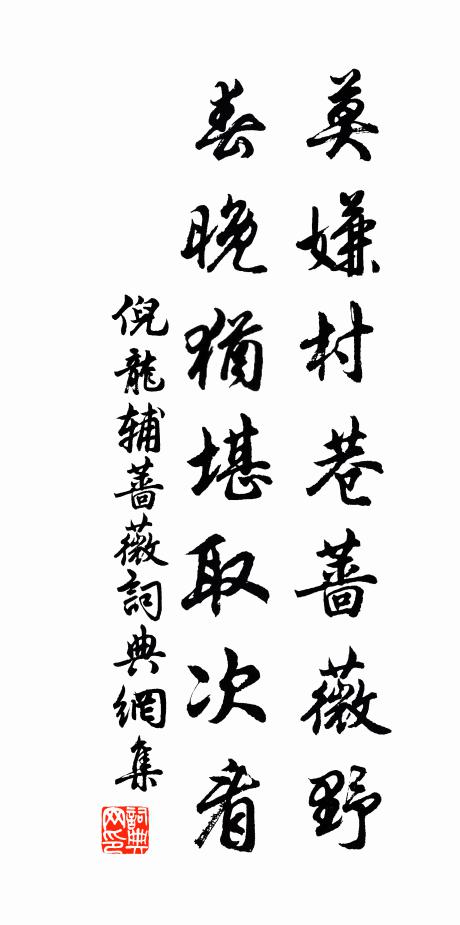 莫嫌村巷蔷薇野
春晚猶堪取次看
倪龍辅蔷薇詞典網集
詞典
网印